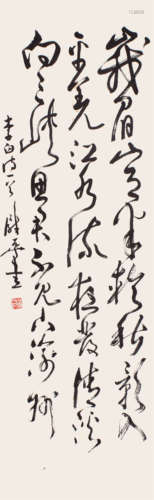 峨眉山月半轮秋影入
平羌江水流夜发清溪
向三峡思君不见下渝州
李白诗一首